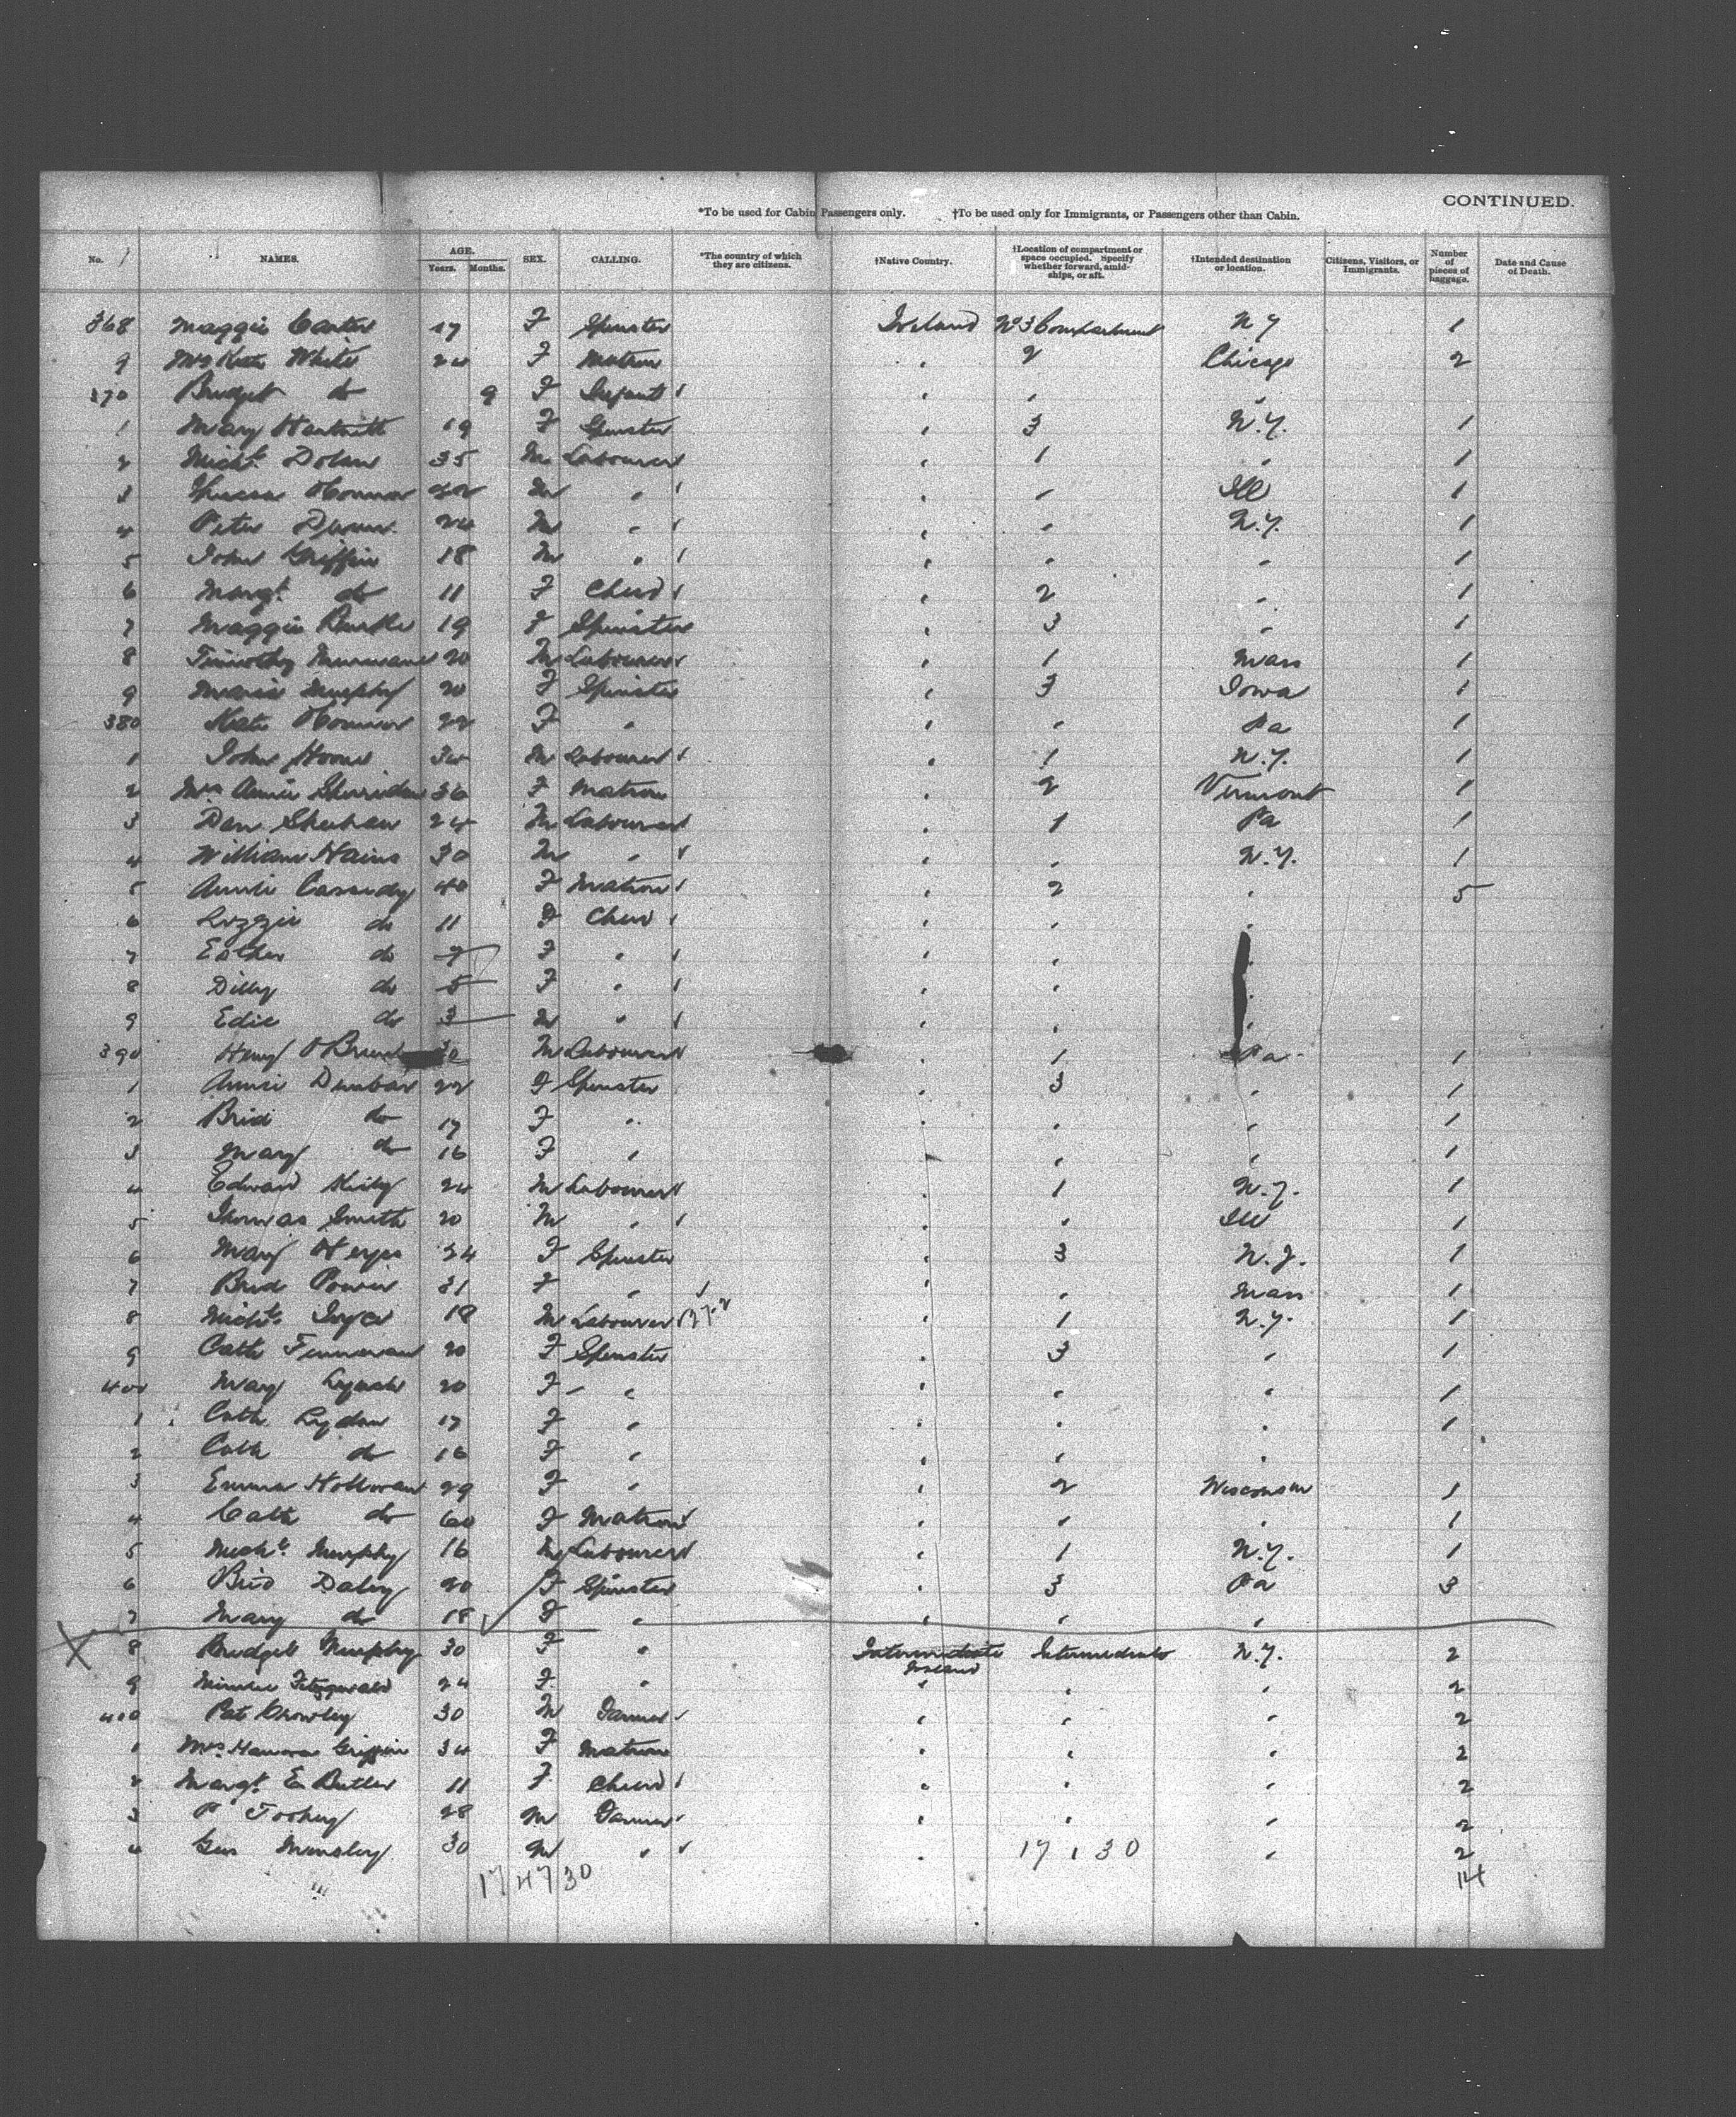 CONTINUED.
*To be used for Cabin Passengers only. †To be used only for Immigrants, or Passengers other than Cabin.
No. NAMES. AGE. Years. Months. SEX. CALLING. *The country of which they are citizens. †Native Country. †Location of compartment or space occupied. Specify whether forward, amidships, or aft. †Intended destination or location. Citizens, Visitors, or Immigrants. Number of pieces of baggage. Date and Cause of Death.
368 Maggie 17 F Spinster Ireland No 3 Compartment N Y 1
9 Mrs Kate White 24 F Matron " 2 Chicago 2
370 Bridget do 9 F Infant " " "
1 Mary Hartnett 19 F Spinster " 3 N.Y. 1
2 Michl. Dolan 35 M Labourer " 1 " 1
3 O'Connor 22 M " " " Ill 1
4 Peter 24 M " " " N.Y. 1
5 John Griffin 18 M " " " " 1
6 Margt. do 11 F Child " 2 " 1
7 Maggie Burke 19 F Spinster " 3 " 1
8 Timothy 20 M Labourer " 1 Mass 1
9 Maria Murphy 20 F Spinster " 3 Iowa 1
380 Kate O'Connor 22 F " " " Pa 1
1 John 34 M Labourer " 1 N.Y. 1
2 Mrs Annie Sherridan 36 F Matron " 2 Vermont 1
3 Dan Sheehan 24 M Labourer " 1 Pa 1
4 William Hains 30 M " " " N.Y. 1
5 Annie Cassidy 40 F Matron " 2 " 5
6 Lizzie do 11 F Child " " "
7 Esther do 7 F " " " "
8 Dilly do 5 F " " " "
9 Edie do 3 M " " " "
390 Henry O'Brien M Labourer " 1 Pa 1
1 Annie Dunbar 22 F Spinster " 3 " 1
2 Brid do 17 F " " " " 1
3 Mary do 16 F " " " " 1
4 Edward 24 M Labourer " 1 N.Y. 1
5 Thomas Smith 20 M " " " Ill 1
6 Mary 24 F Spinster " 3 N.J. 1
7 Brid Power 21 F " " " Mass 1
8 Michl. 18 M Labourer " 1 N.Y. 1
9 Cath Finneran 20 F Spinster " 3 " 1
400 Mary 20 F " " " " 1
1 Cath Lydon 17 F " " " " 1
2 Cath do 16 F " " " "
3 Emma 29 F " " 2 Wisconsin 1
4 Cath do 60 F Matron " " " 1
5 Michl. Murphy 16 M Labourer " 1 N.Y. 1
6 Brid Daley 20 F Spinster " 3 Pa 3
7 Mary do 18 F " " " "
8 Bridget Murphy 30 F " Intermediate Ireland Intermediate N.Y. 2
9 Minnie Fitzgerald 24 F " " " " 2
410 Pat Crowley 30 M Farmer " " " 2
1 Mrs Hanora Griffin 34 F Matron " " " 2
2 Margt. E Butler 11 F Child " " " 2
3 P Toohey 28 M Farmer " " " 2
4 30 M " " " 2
17 47 30 17 1 30 114